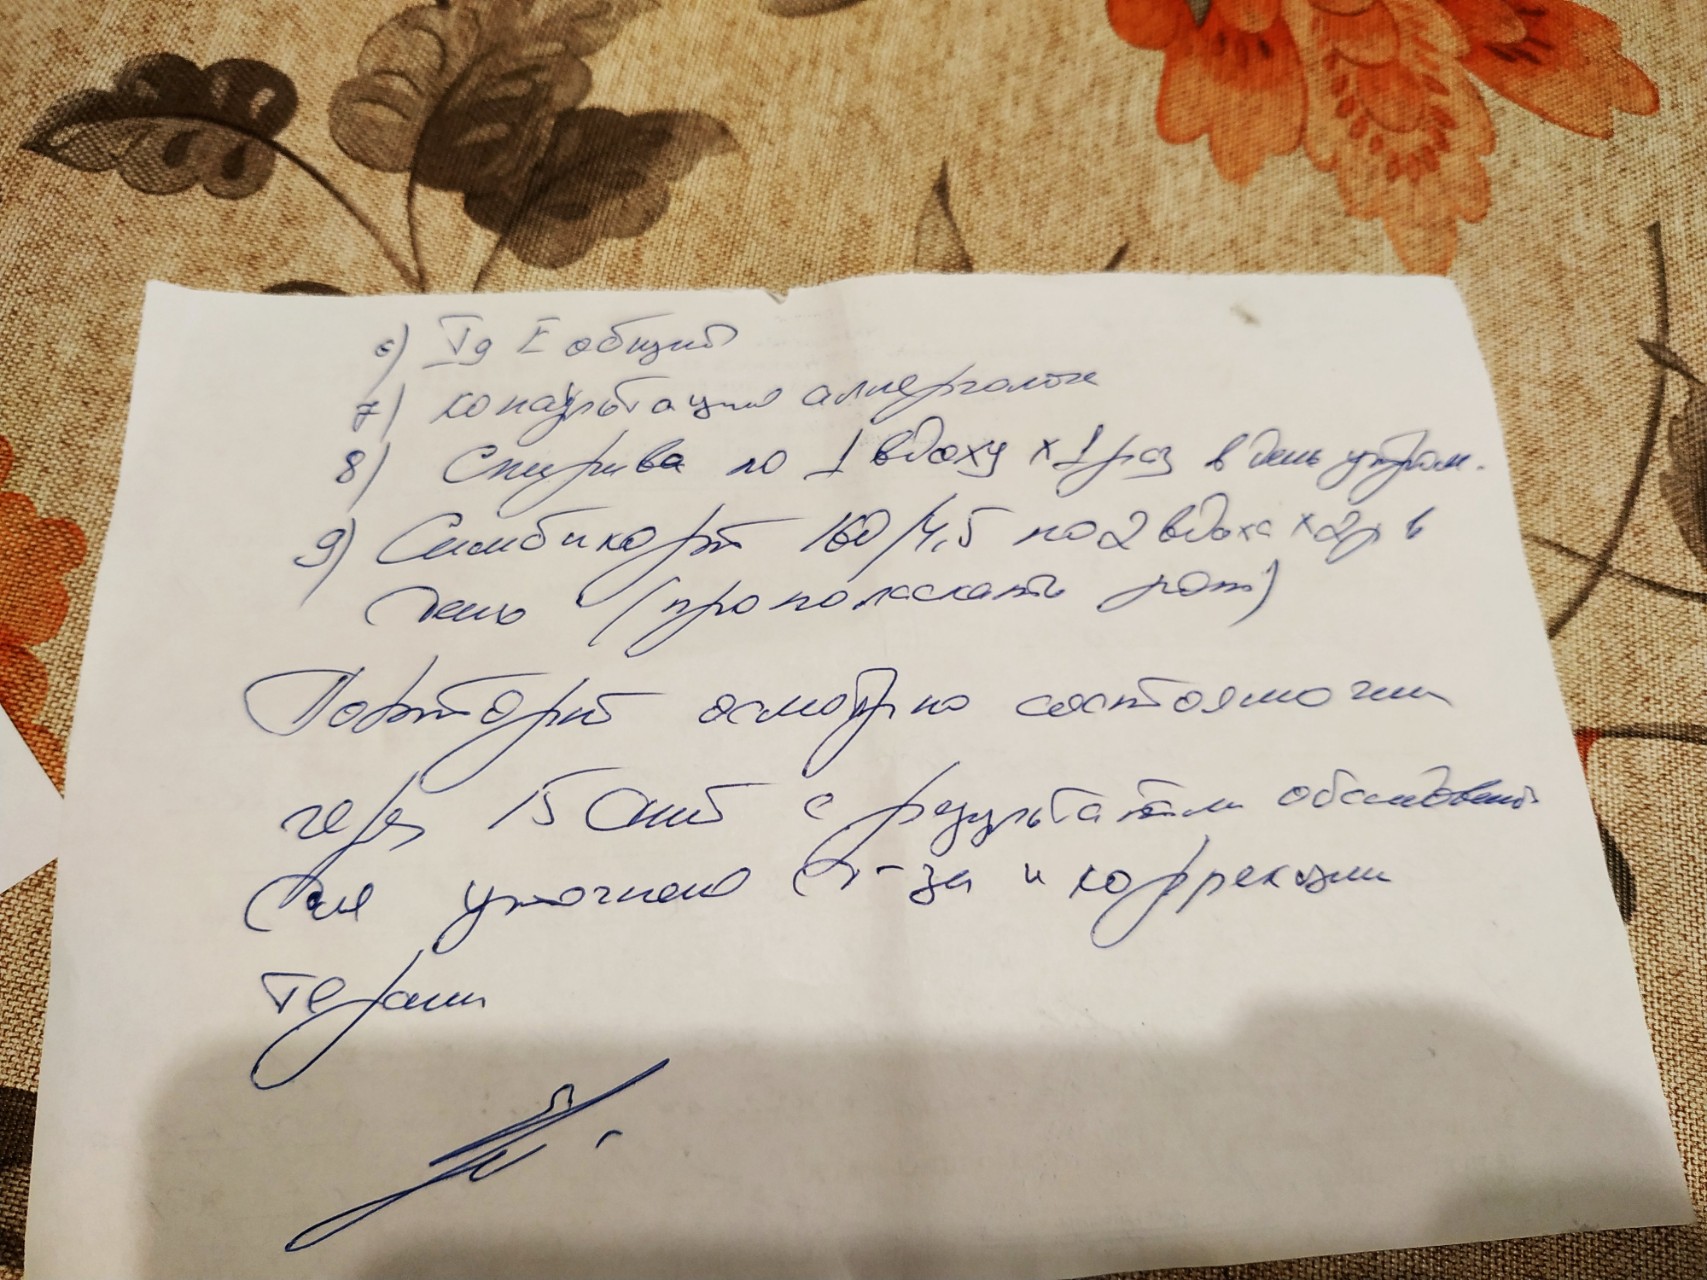 6) Ig E общий
7) консультация аллерголога
8) Спирива по 1 вдоху x 1 раз в день утром.
9) Симбикорт 160/4,5 по 2 вдоха x 2р в
день (прополаскать рот)
Повторный осмотр по состоянию или
через 15 дней с результатами обследований
для уточнения д-за и коррекции
терапии